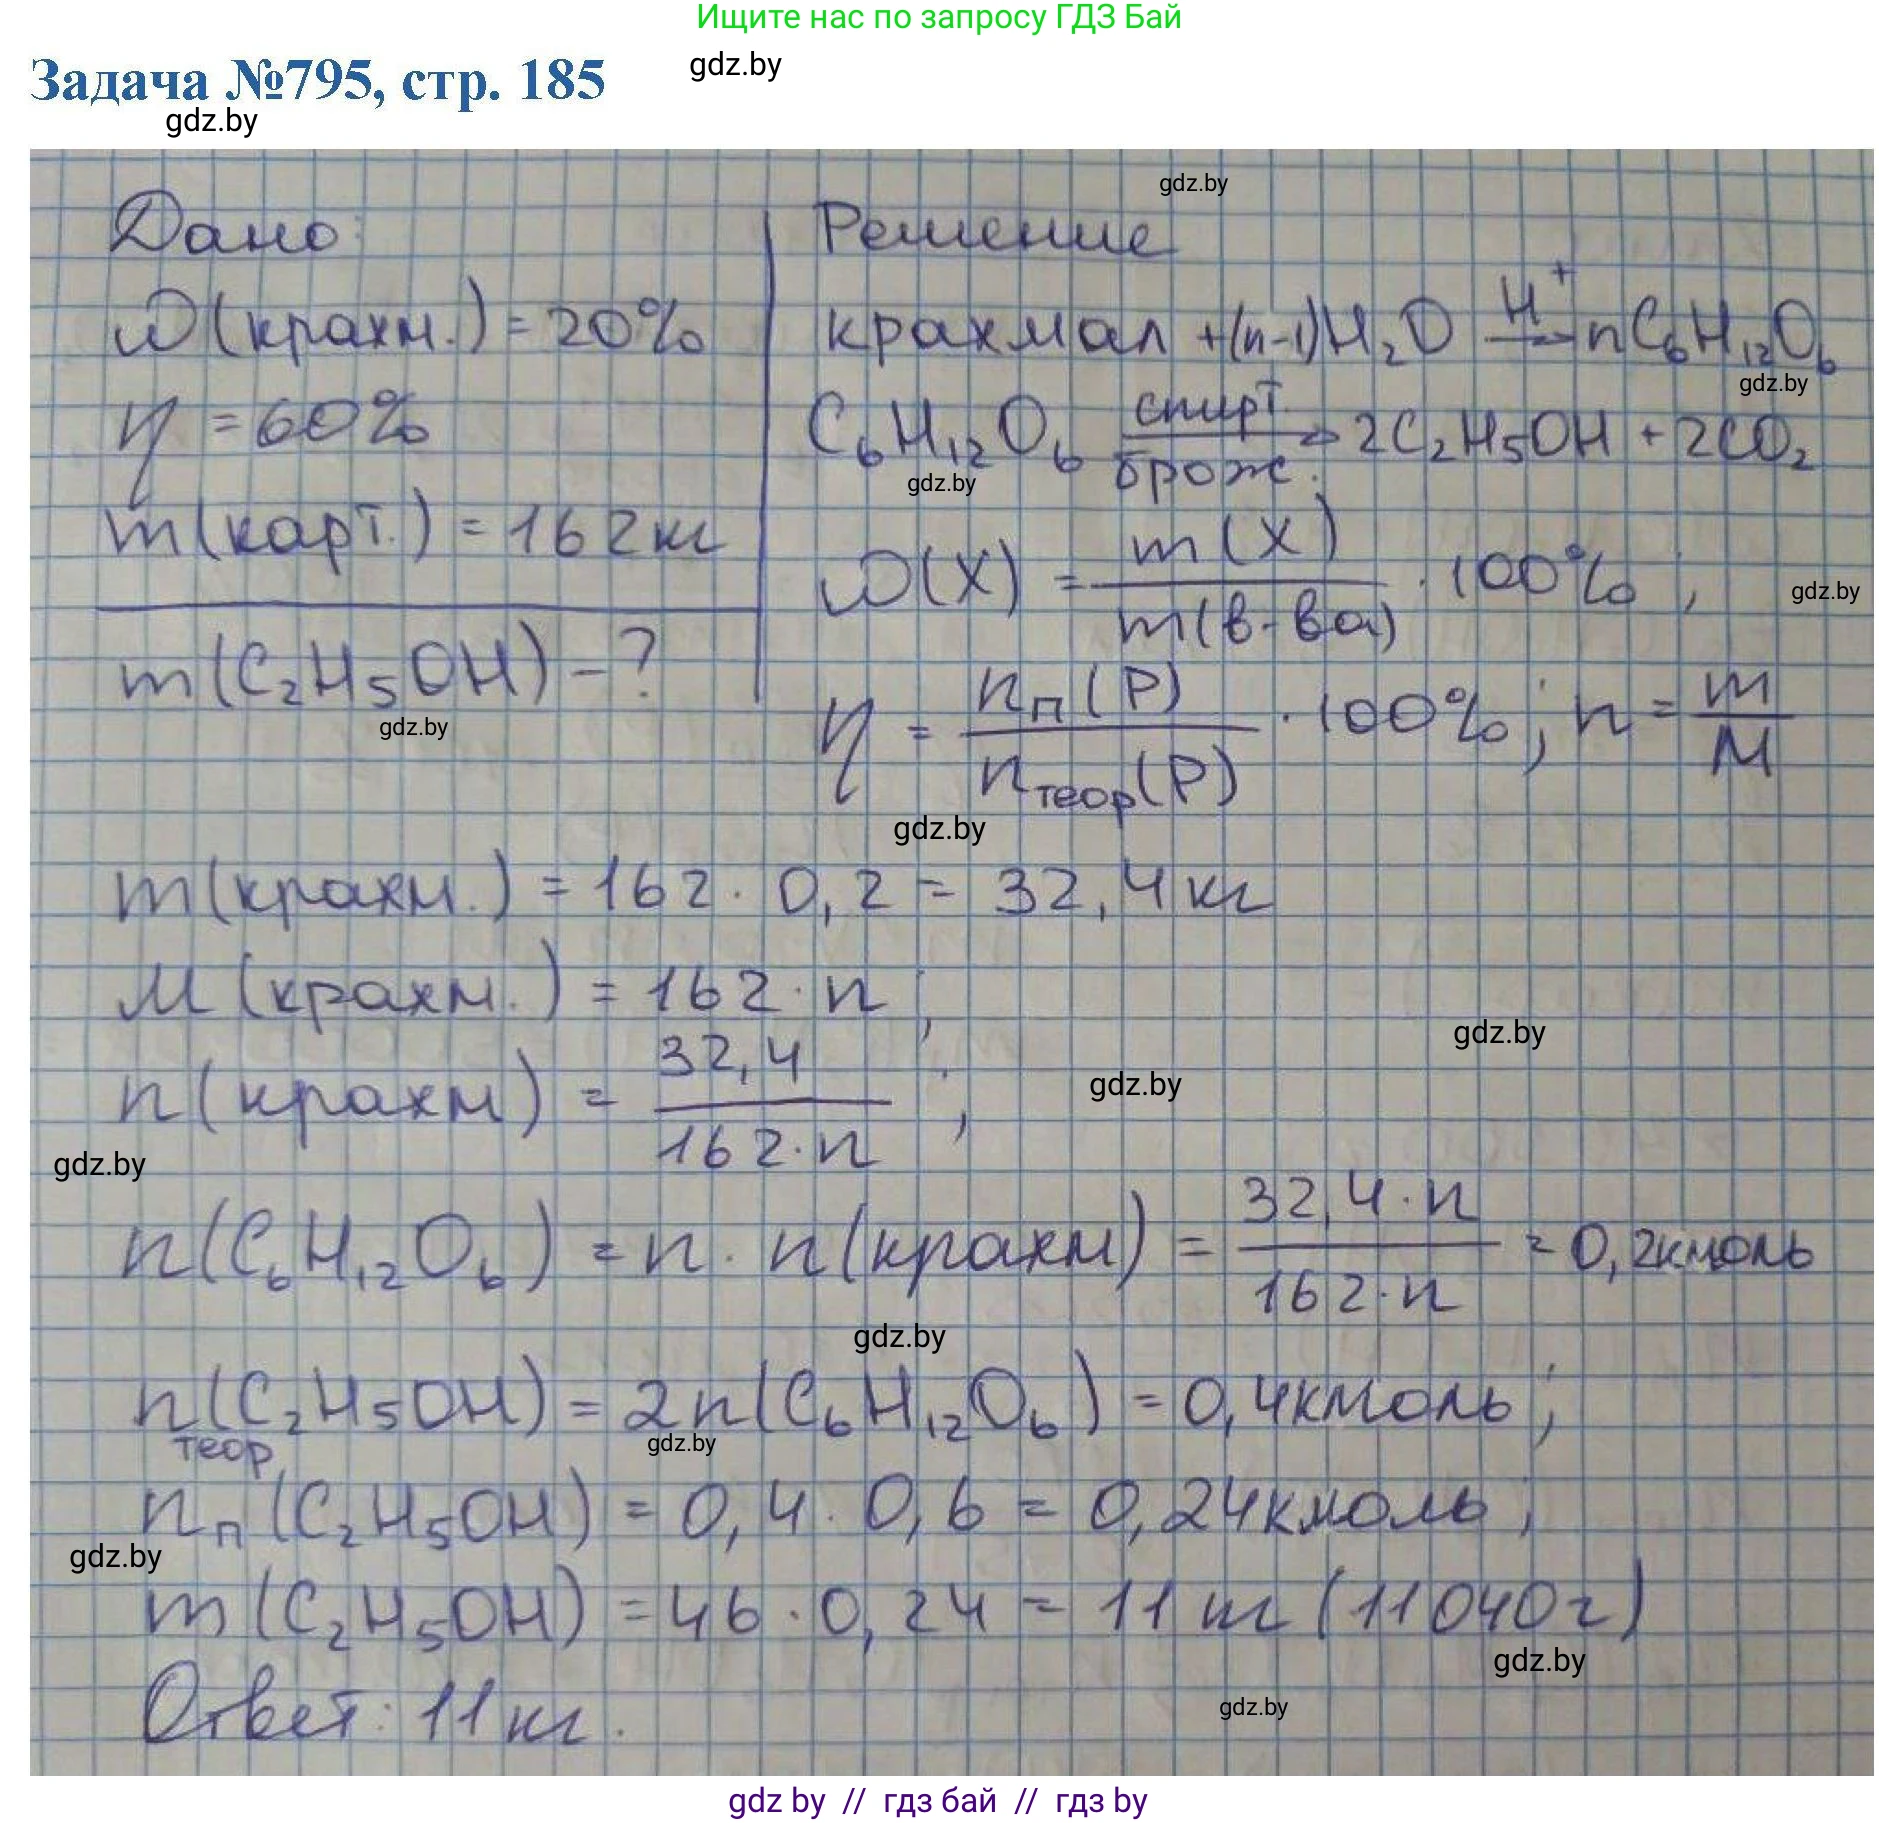 Ищите нас по запросу ГДЗ Бай
Задача №795, стр. 185
gdz.by
gdz.by
gdz.by
Дано:
ω(крахм.) = 20%
η = 60%
m(карт.) = 162 кг
m(C₂H₅OH) - ?
gdz.by
Решение
крахмал + (n-1)H₂O H⁺→ nC₆H₁₂O₆
gdz.by
C₆H₁₂O₆ спирт. брож.→ 2C₂H₅OH + 2CO₂
gdz.by
ω(X) = m(X) / m(в-ва) · 100% ;
gdz.by
η = nп(P) / nтеор(P) · 100% ; n = m / M
gdz.by
m(крахм.) = 162 · 0,2 = 32,4 кг
M(крахм.) = 162 · n ;
gdz.by
n(крахм) = 32,4 / 162 · n ;
gdz.by
gdz.by
n(C₆H₁₂O₆) = n · n(крахм) = 32,4 · n / 162 · n = 0,2 кмоль
gdz.by
nтеор(C₂H₅OH) = 2n(C₆H₁₂O₆) = 0,4 кмоль ;
gdz.by
nп(C₂H₅OH) = 0,4 · 0,6 = 0,24 кмоль ;
gdz.by
m(C₂H₅OH) = 46 · 0,24 = 11 кг (11040 г)
gdz.by
Ответ: 11 кг.
gdz.by
gdz by // гдз бай // гдз by